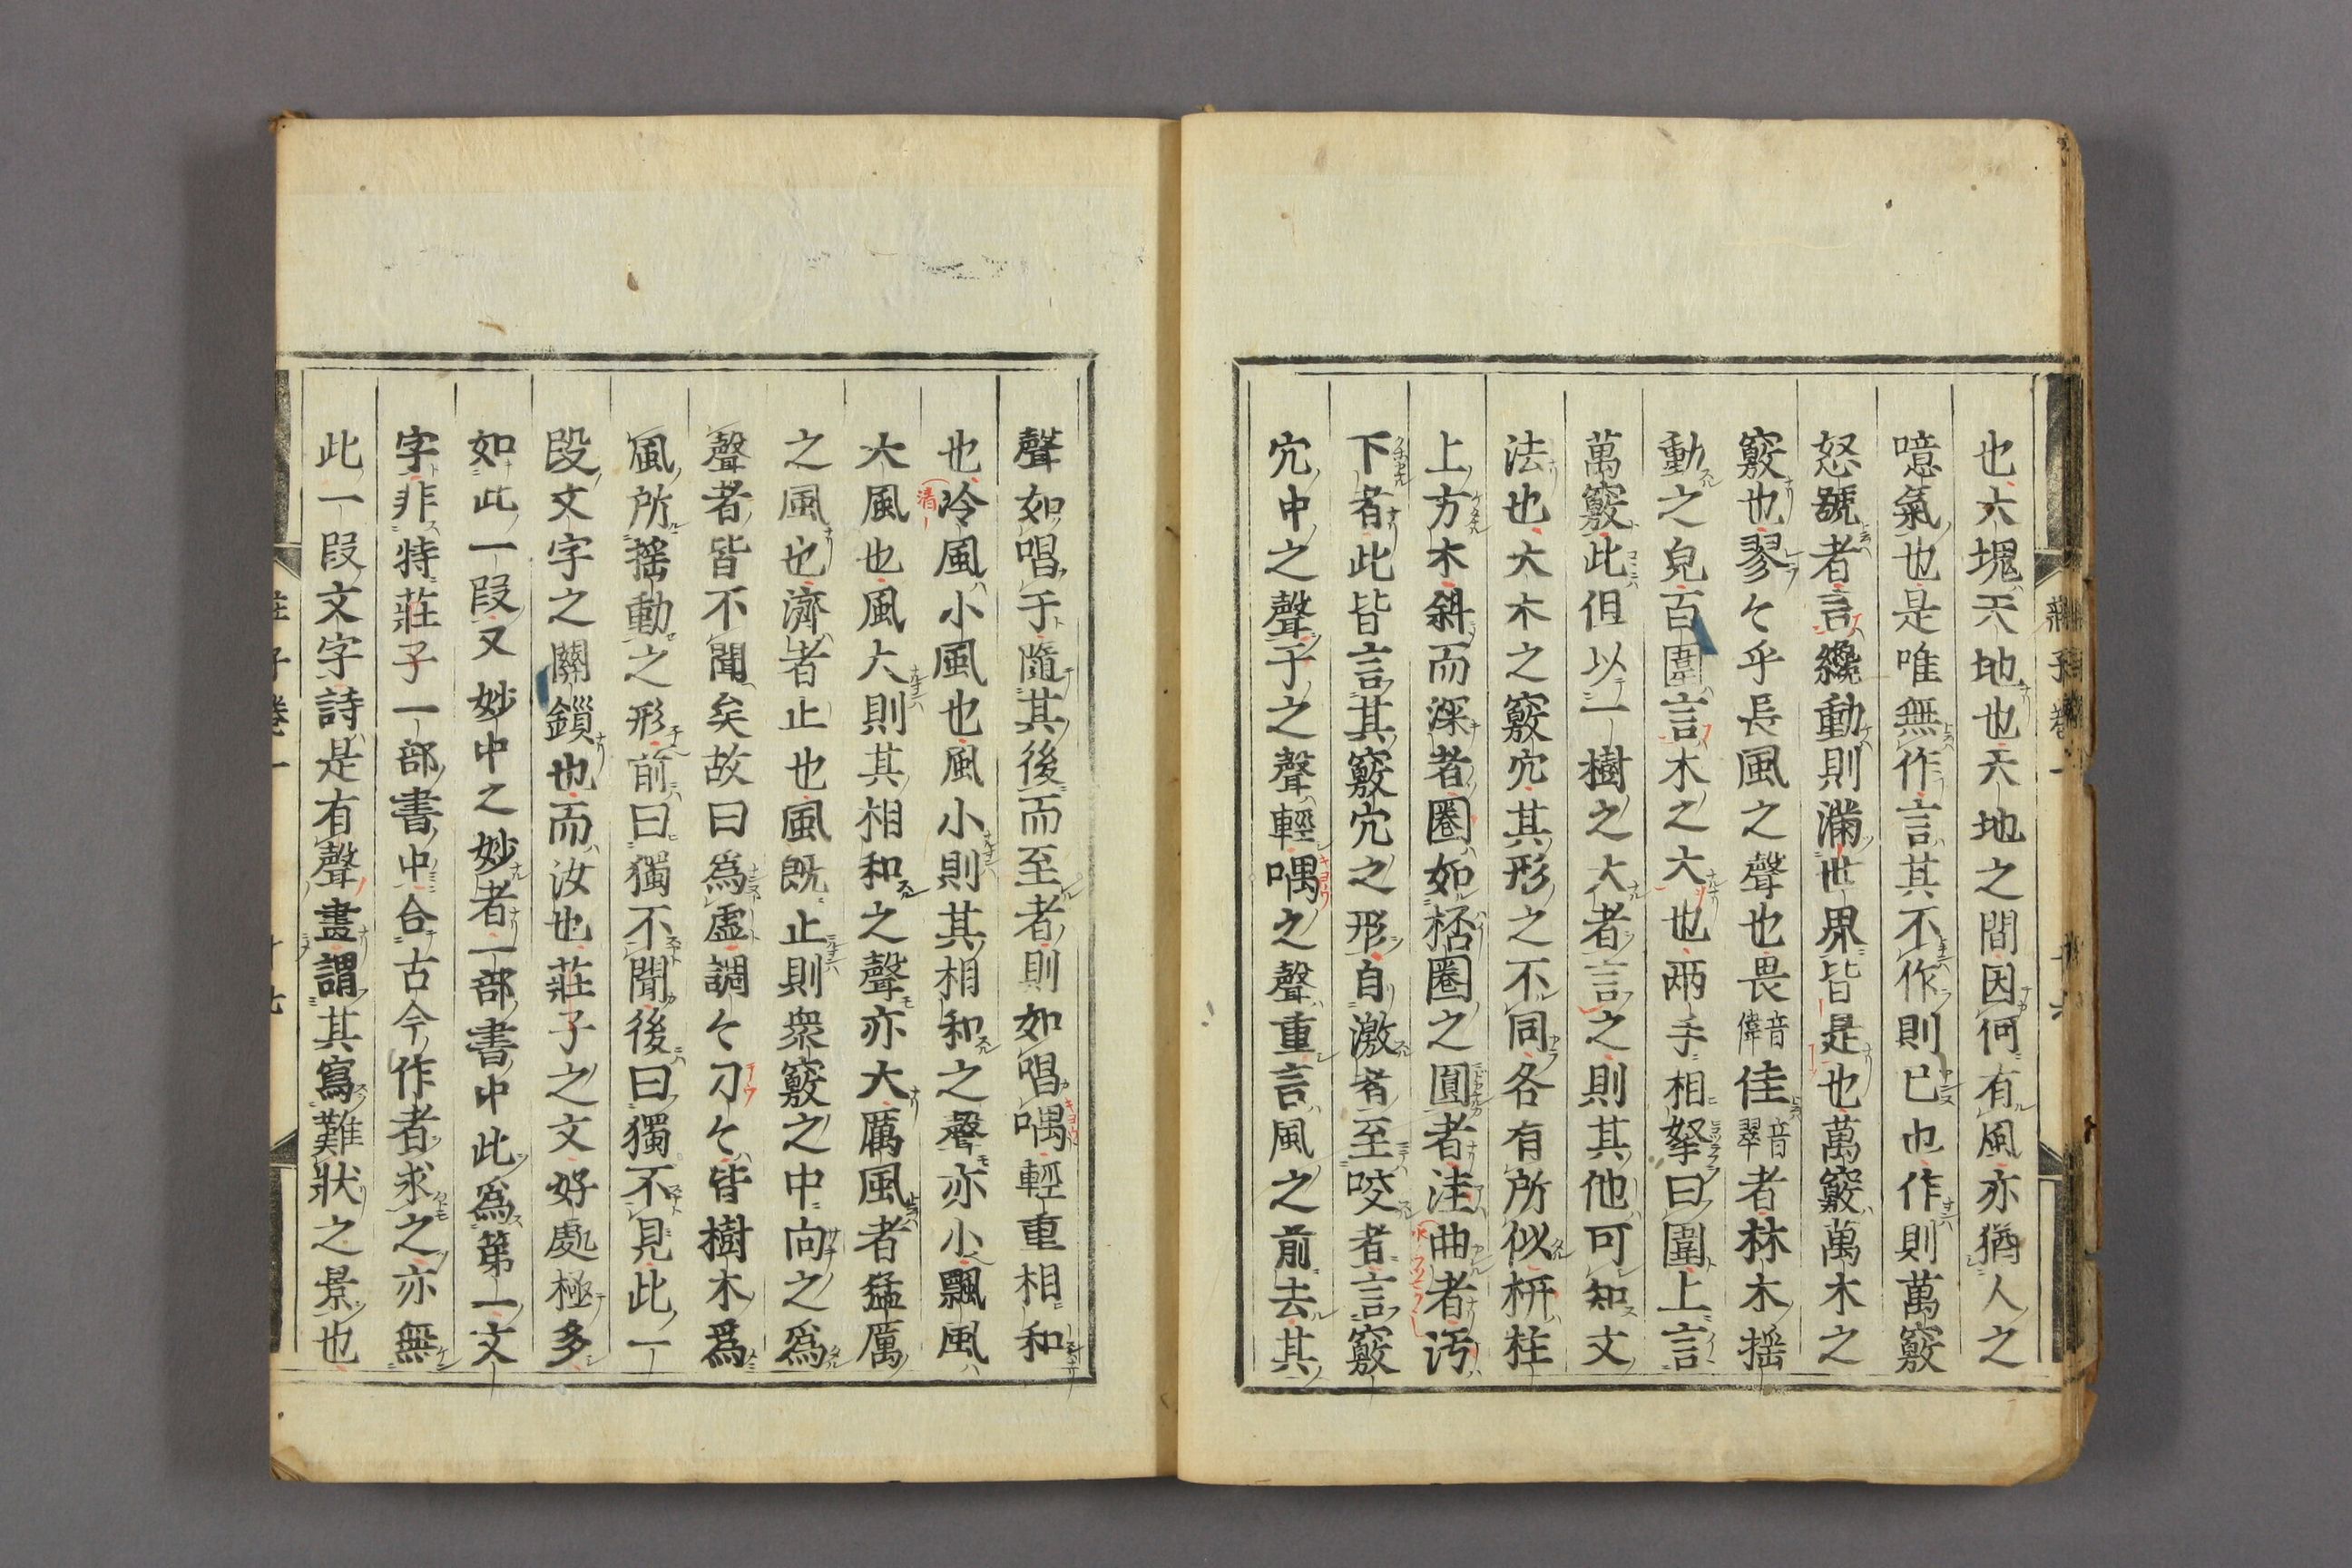 也大塊天地也天地之間因何有風亦猶人之
噫氣也是唯無作言其不作則已也作則萬竅
怒號者言纔動則滿世界皆是也萬竅萬木之
竅也翏々乎長風之聲也畏音偉佳音翠者林木搖
動之皃百圍言木之大也兩手相拏曰圍上言
萬竅此但以一樹之大者言之則其他可知文
法也大木之竅穴其形之不同各有所似枅柱
上方木斜而深者圈如桮圈之圓者洼曲者汚
下者此皆言其竅穴之形自激者至咬者言竅
穴中之聲于之聲輕喁之聲重言風之前去其
聲如唱于隨其後而至者則如唱喁輕重相和
也泠風小風也風小則其相和之聲亦小飄風
大風也風大則其相和之聲亦大厲風者猛厲
之風也濟者止也風既止則衆竅之中向之爲
聲者皆不聞矣故曰爲虛調々刁々皆樹木爲
風所搖動之形前曰獨不聞後曰獨不見此一
段文字之關鎖也而汝也莊子之文好處極多
如此一段又妙中之妙者一部書中此爲第一文
字非特莊子一部書中合古今作者求之亦無
此一段文字詩是有聲畫謂其寫難狀之景也